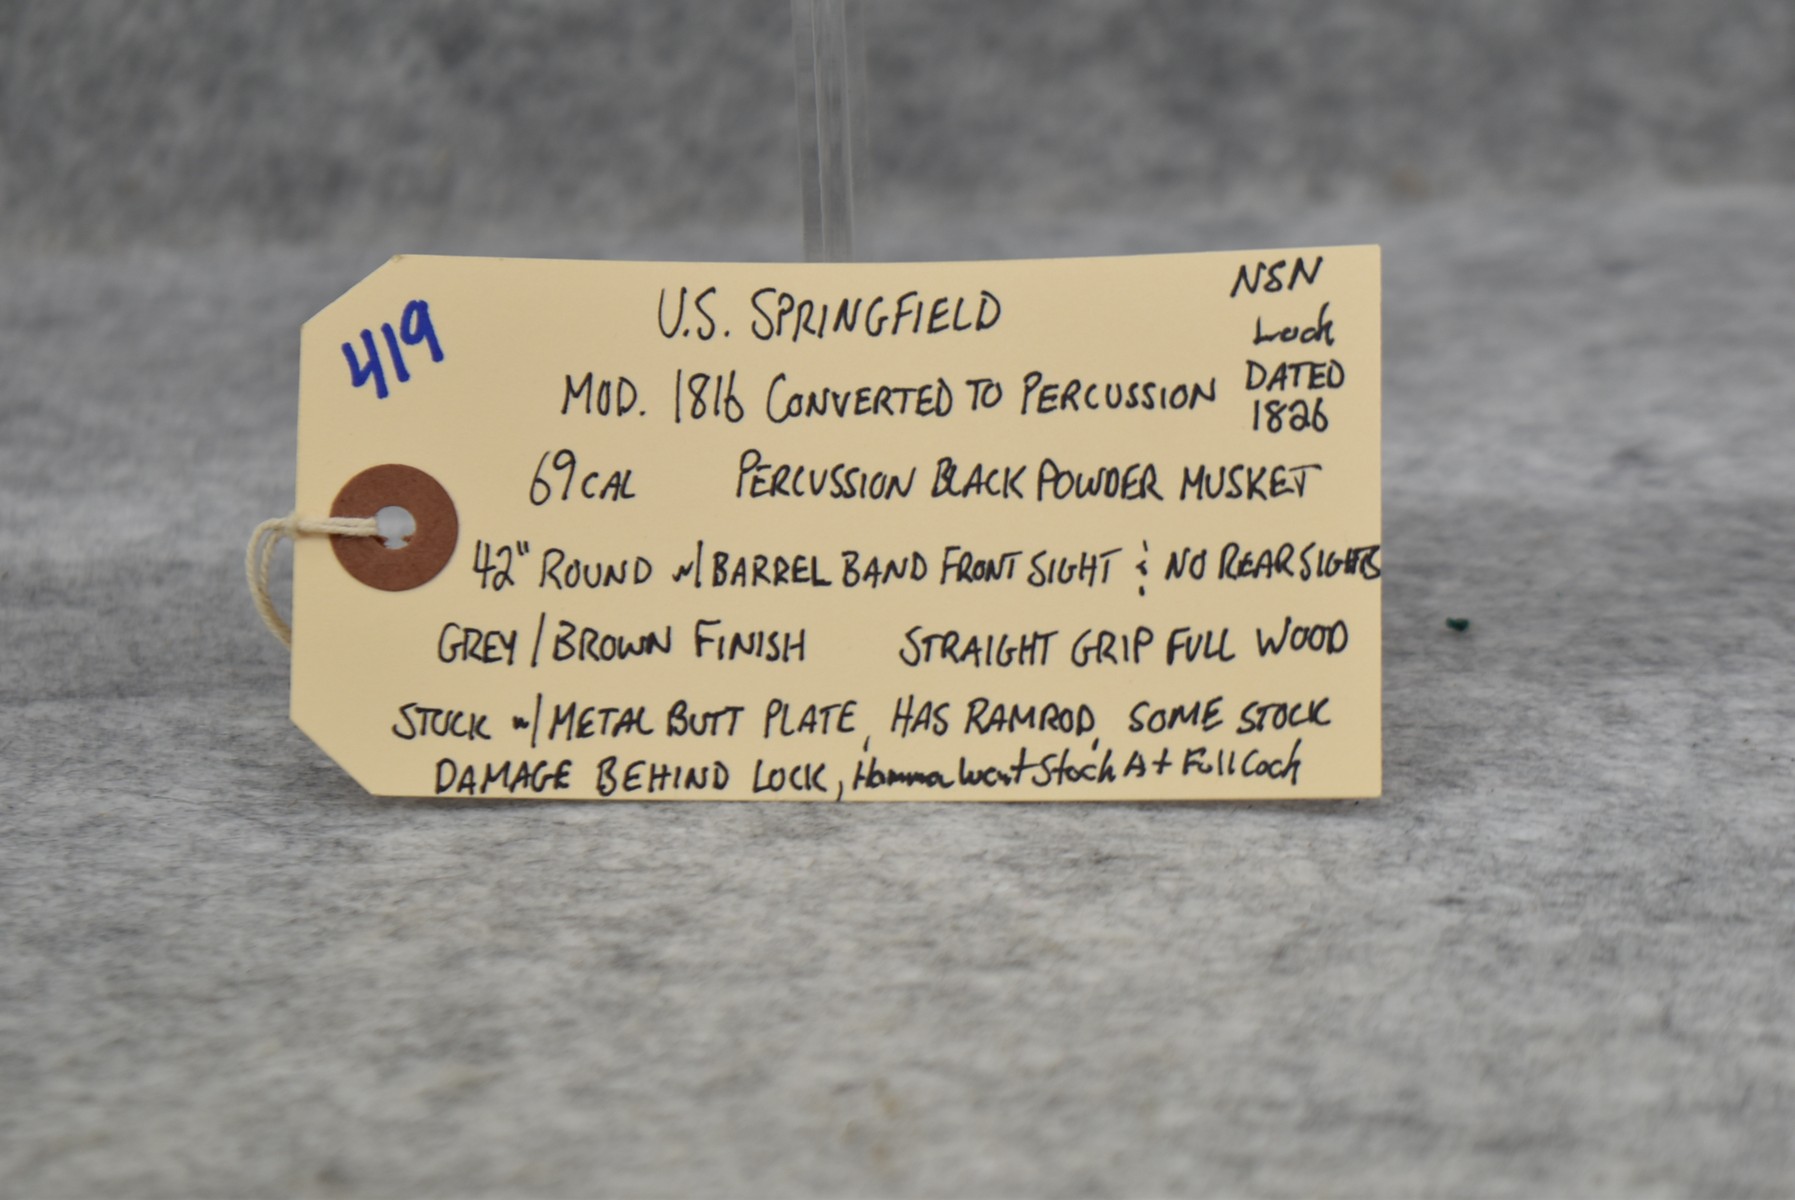 419
U.S. SPRINGFIELD
NSN
Lock
DATED
1826
MOD. 1816 CONVERTED TO PERCUSSION
69 CAL PERCUSSION BLACK POWDER MUSKET
42" ROUND w/ BARREL BAND FRONT SIGHT & NO REAR SIGHTS
GREY / BROWN FINISH STRAIGHT GRIP FULL WOOD
STOCK w/ METAL BUTT PLATE, HAS RAMROD, SOME STOCK
DAMAGE BEHIND LOCK, Hammer Won't Stock At Full Cock